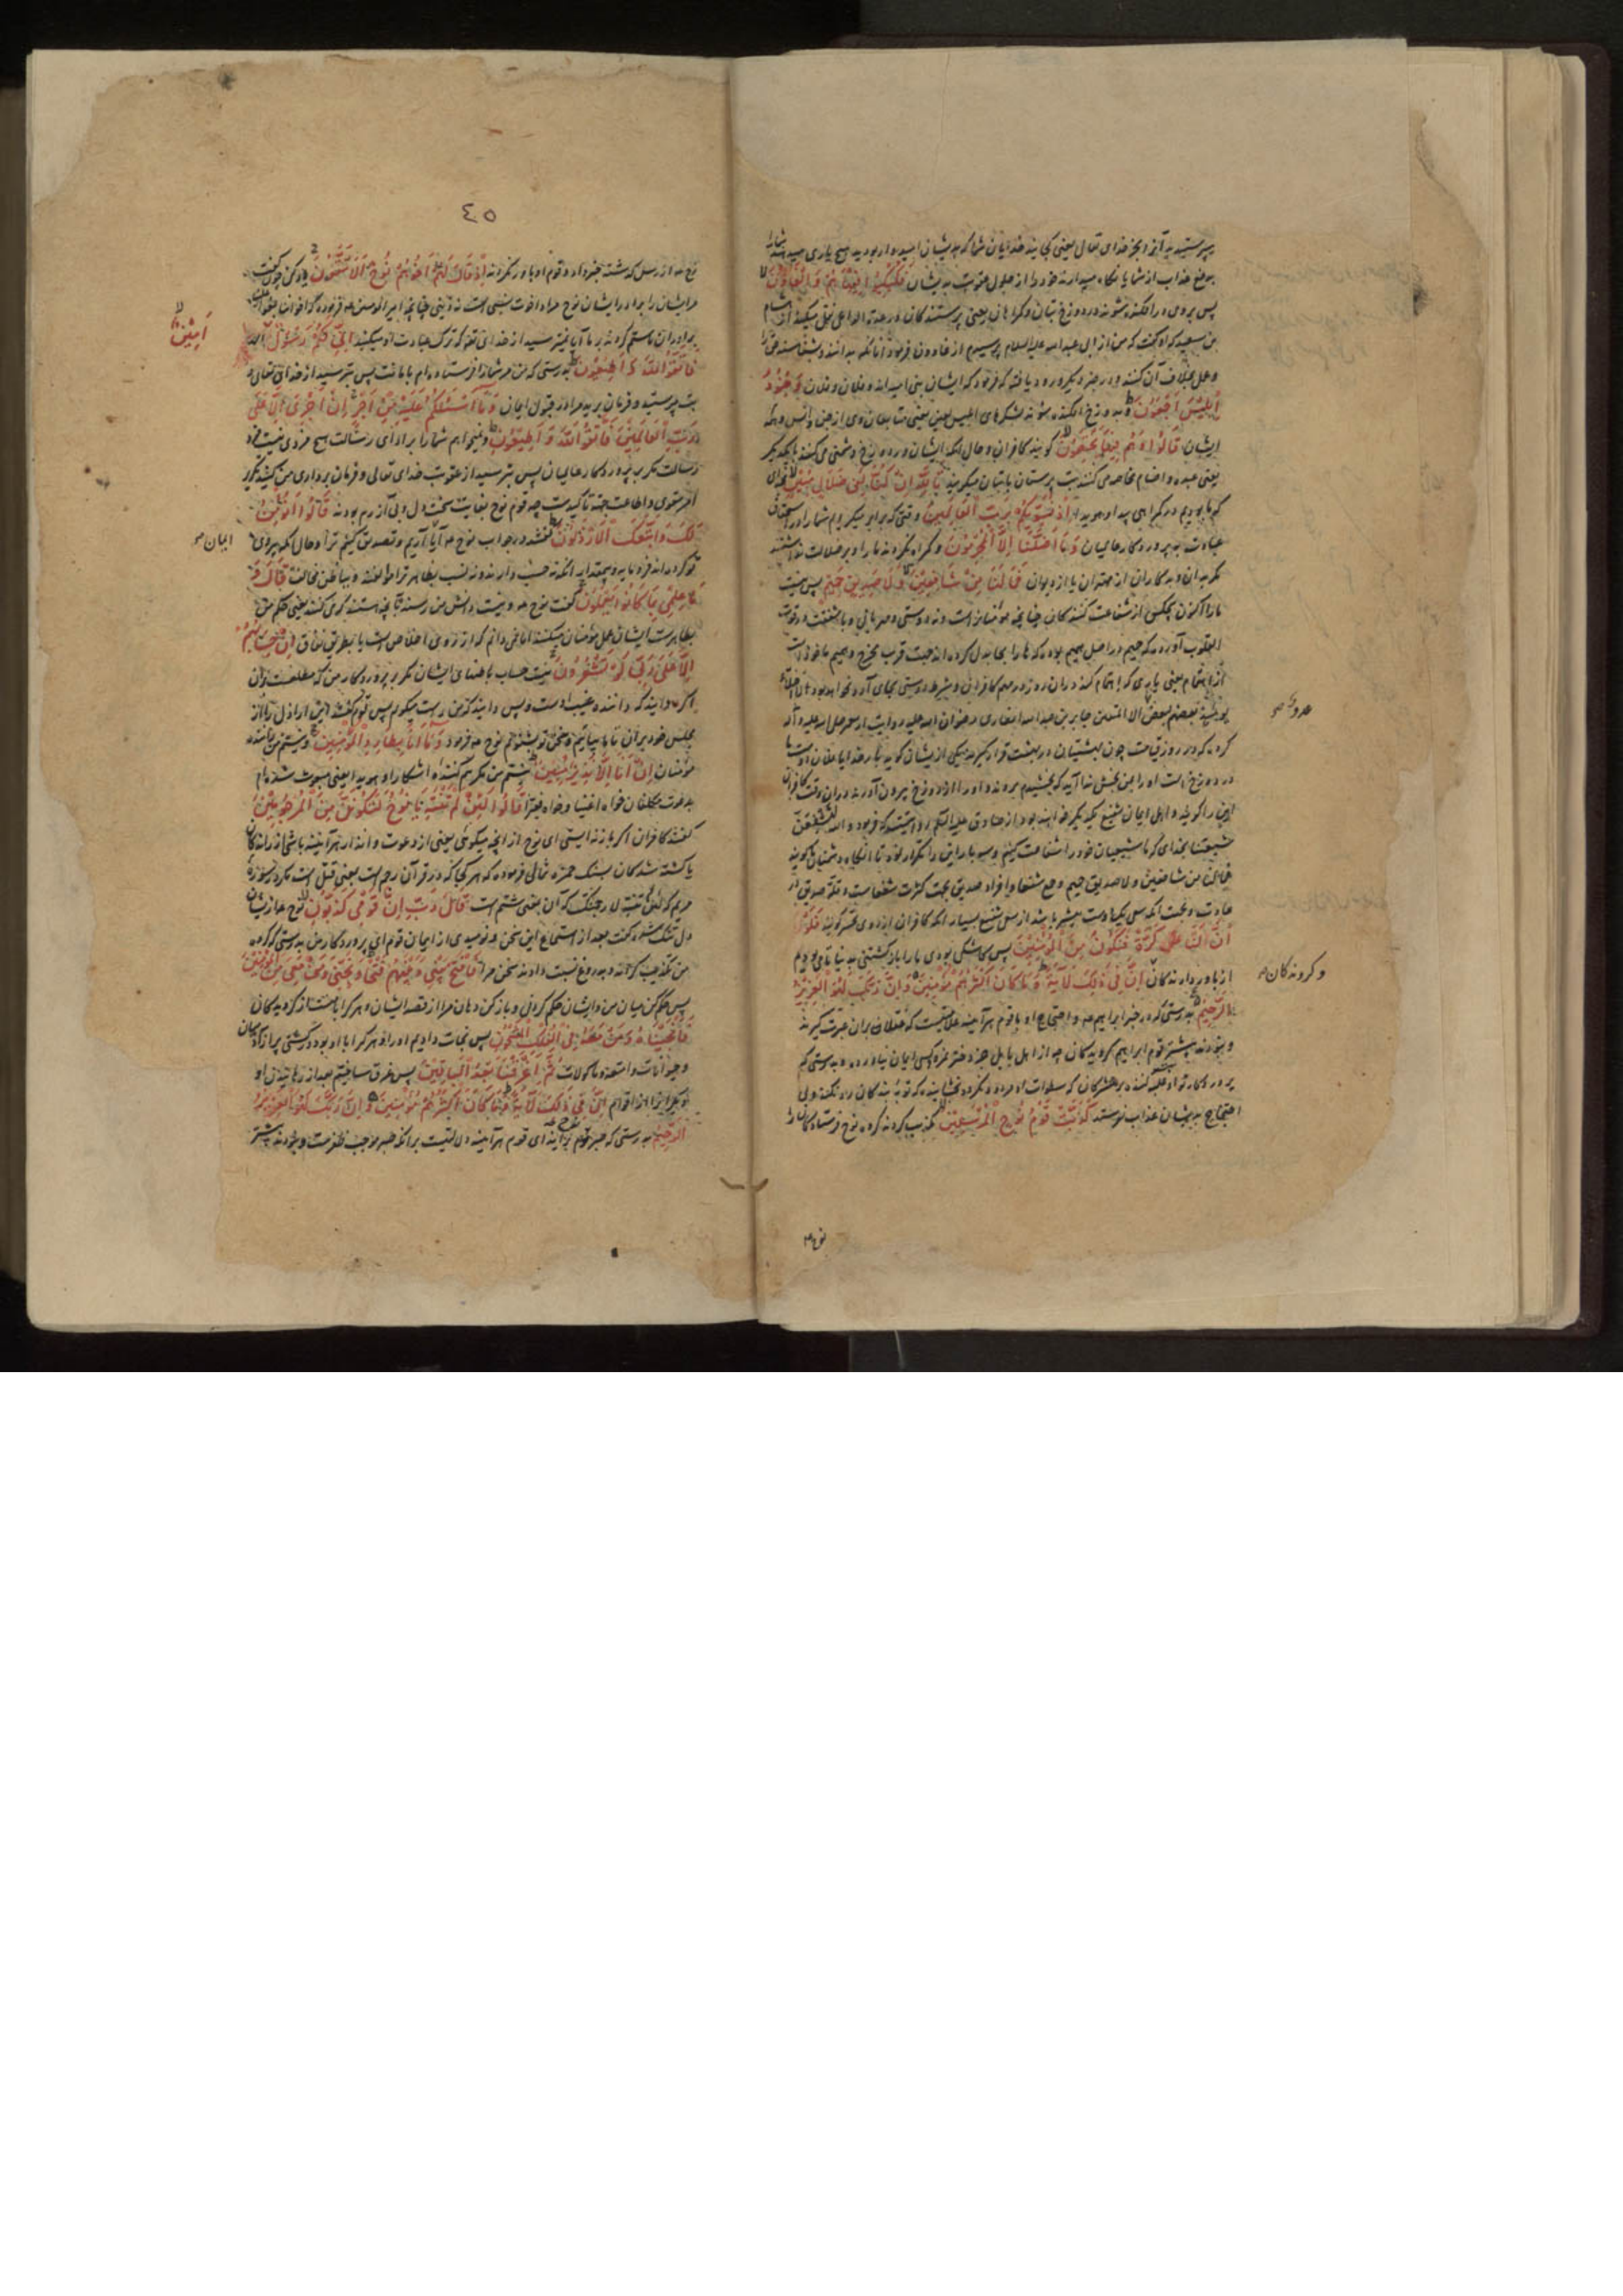 میپرستیدید آنرا بجز خدای تعالی یعنی کجایند خدایان شما که بدیشان امیدوار بودید هیچ یاری میدهند شما را
بدفع عذاب از شما یا نگاه میدارند خود را از حلول عقوبت بدیشان فَكُبْكِبُوا فِيهَا هُمْ وَالْغَاوُونَ
پس بروی در افکنده شوند در دوزخ بتان و گمراهان یعنی پرستندگان
از ابی عبدالله علیه السلام پرسیدم از غاوون فرمود آنانکه
و عمل بخلاف آن کنند و در خبر دیگر ورود یافته که فرمود که ایشان بنی امیه اند و فلان و فلان وَجُنُودُ
إِبْلِيسَ أَجْمَعُونَ و بدوزخ افکنده شوند لشکرهای ابلیس لعین یعنی متابعان وی از جن و انس و همه
ایشان قَالُوا وَهُمْ فِيهَا يَخْتَصِمُونَ گویند کافران و حال آنکه ایشان در دوزخ دشمنی می کنند با یکدیگر
یعنی عبده و اصنام مخاصمه می کنند بت پرستان با بتان میگویند تَاللَّهِ إِنْ كُنَّا لَفِي ضَلَالٍ مُبِينٍ بخدای
که ما بودیم در گمراهی پیدا و هویدا إِذْ نُسَوِّيكُمْ بِرَبِّ الْعَالَمِينَ وقتی که برابر میکردیم شما را در استحقاق
عبادت به پروردگار عالمیان وَمَا أَضَلَّنَا إِلَّا الْمُجْرِمُونَ و گمراه نکردند ما را و بر ضلالت نداشتند
مگر بدان و بدکاران از مهتران یا از دیوان فَمَا لَنَا مِنْ شَافِعِينَ وَلَا صَدِيقٍ حَمِيمٍ پس نیست
ما را اکنون هیچکس از شفاعت کنندگان چنانچه مؤمنانراست و نه دوستی و مهربانی و با شفقت
القلوب آورده که حمیم در اصل همیم بوده که ها را بحا بدل کرده اند جهت قرب مخرج و همیم ماخوذ است
از اهتمام یعنی یاری که اهتمام کند در آن روز در مهم کافران و شرط دوستی بجای آرد نخواهد بود
یومئذ بعضهم لبعض الا المتقین جابر بن عبدالله انصاری رضوان الله علیه روایت از رسول صلی الله علیه و آله
کرده که در روز قیامت چون بهشتیان در بهشت قرار گیرند یکی از ایشان گوید بار خدایا فلان دوست ما
در دوزخ است او را بمن بخش ندا آید که بخشیدم بروند و او را از دوزخ بیرون آورند در آن وقت کافران
این را گویند و اهل ایمان شفیع یکدیگر خواهند بود از صادق علیه السلام روایتست که فرمود والله لنشفعن
شیعتنا بخدای که ما شیعیان خود را شفاعت کنیم و سه بار این را تکرار نمود تا آنگاه دشمنان گویند
فمالنا من شافعین ولا صدیق حمیم و جمع شفعا و افراد صدیق بجهت کثرت شفعاست و قلة صدیق در
عادت فَلَوْ
أَنَّ لَنَا كَرَّةً فَنَكُونَ مِنَ الْمُؤْمِنِينَ پس کاشکی بودی ما را بازگشتنی بدنیا تا می بودیم
از باور دارندگان إِنَّ فِي ذَلِكَ لَآيَةً وَمَا كَانَ أَكْثَرُهُمْ مُؤْمِنِينَ وَإِنَّ رَبَّكَ لَهُوَ الْعَزِيزُ
الرَّحِيمُ بدرستی که در خبر ابراهیم و احتجاج او با قوم هر آینه علامتیست که عاقلان بدان عبرت گیرند
و نبودند بیشتر قوم ابراهیم گرویدگان چه از اهل بابل جز دختر نمرود کسی ایمان نیاورده و بدرستی که
پروردگار تو او غلبه کننده بر مشرکان
احتجاج بدیشان عذاب نفرستد كَذَّبَتْ قَوْمُ نُوحٍ الْمُرْسَلِينَ تکذیب کردند گروه نوح فرستادگان را
عدو
و گروندگان
نوح
٤٥
نوح از رسل گذشته خبر داد و قوم او باور نکردند إِذْ قَالَ لَهُمْ أَخُوهُمْ نُوحٌ أَلَا تَتَّقُونَ یاد کن چون گفت
مر ایشان را برادر ایشان نوح مراد اخوت نسبی است نه دینی چنانچه امیر المومنین فرموده
برادران ما ستم کردند بر ما آیا نمیترسید از خدای تعالی که ترک عبادت او میکنید إِنِّي لَكُمْ رَسُولٌ
أَمِينٌ
فَاتَّقُوا اللَّهَ وَأَطِيعُونِ بدرستی که من مر شما را فرستاده ام با امانت پس بترسید از خدای تعالی و
بت مپرستید و فرمان برید مرا در قبول ایمان وَمَا أَسْأَلُكُمْ عَلَيْهِ مِنْ أَجْرٍ إِنْ أَجْرِيَ إِلَّا عَلَى
رَبِّ الْعَالَمِينَ فَاتَّقُوا اللَّهَ وَأَطِيعُونِ و نمیخواهم شما را بر ادای رسالت هیچ مزدی نیست مزد
رسالت مگر بر پروردگار عالمیان پس بترسید از عقوبت خدای تعالی و فرمان برداری من کنید تکریر
امر بتقوی و اطاعت جهة تأکید است چه قوم نوح بغایت سخت دل و بی آزرم بودند قَالُوا أَنُؤْمِنُ
لَكَ وَاتَّبَعَكَ الْأَرْذَلُونَ گفتند در جواب نوح آیا آریم و تصدیق کنیم ترا و حال آنکه پیروی
ایمان
تو کرده اند فرومایه و بیمقدار آنکه نه حسب دارند و نه نسب بظاهر ترا موافقند و بباطن مخالف قَالَ وَمَا
عِلْمِي بِمَا كَانُوا يَعْمَلُونَ گفت نوح و نیست دانش من رسنده بآنچه هستند که می کنند یعنی حکم من
بظاهرست ایشان عمل مؤمنان میکنند اما نمی دانم که از روی اخلاص است یا بطریق نفاق إِنْ حِسَابُهُمْ
إِلَّا عَلَى رَبِّي لَوْ تَشْعُرُونَ نیست حساب باطنهای ایشان مگر بر پروردگار من که مطلعست بر آن
اگر بدانید که داننده غیب اوست و بس دانید که من راست میگویم پس قوم گفتند این اراذل را از
مجلس خود بران تا ما بیائیم و سخن تو بشنویم نوح فرمود وَمَا أَنَا بِطَارِدِ الْمُؤْمِنِينَ و نیستم من راننده
مؤمنان إِنْ أَنَا إِلَّا نَذِيرٌ مُبِينٌ نیستم من مگر بیم کننده آشکارا و هویدا یعنی مبعوث شده ام
بدعوت مکلفان خواه اغنیا و خواه فقرا قَالُوا لَئِنْ لَمْ تَنْتَهِ يَا نُوحُ لَتَكُونَنَّ مِنَ الْمَرْجُومِينَ
گفتند کافران اگر باز نه ایستی ای نوح از آنچه میگوئی یعنی از دعوت و انذار هر آینه باشی از رانده گان
یا کشته شدگان بسنگ حمزه ثمالی فرموده که هر کجا که در قرآن رجم است بمعنی قتل است مگر در سوره
مریم که لئن لم تنته لارجمنک که آن بمعنی شتم است قَالَ رَبِّ إِنَّ قَوْمِي كَذَّبُونِ نوح
دل تنگ شد و گفت بعد از استماع این سخن و نومیدی از ایمان قوم ای پروردگار من بدرستی که گروه
من تکذیب کردند و بدروغ نسبت دادند سخن مرا فَافْتَحْ بَيْنِي وَبَيْنَهُمْ فَتْحًا وَنَجِّنِي وَمَنْ مَعِيَ مِنَ الْمُؤْمِنِينَ
پس حکم کن میان من و ایشان حکم کردنی و باز کن و برهان مرا از قصد ایشان و هر که را با منست از گرویدگان
فَأَنْجَيْنَاهُ وَمَنْ مَعَهُ فِي الْفُلْكِ الْمَشْحُونِ پس نجات دادیم او را و هر که را با او بود در کشتی پر از آدمیان
و حیوانات و امتعه و ماکولات ثُمَّ أَغْرَقْنَا بَعْدُ الْبَاقِينَ پس غرق ساختیم بعد از رهانیدن او
دیگرانرا از اقوام إِنَّ فِي ذَلِكَ لَآيَةً وَمَا كَانَ أَكْثَرُهُمْ مُؤْمِنِينَ وَإِنَّ رَبَّكَ لَهُوَ الْعَزِيزُ
الرَّحِيمُ بدرستی که صبر نوح بر ایذای قوم هر آینه دلالتیست بر آنکه صبر موجب ظفرست و نبودند بیشتر